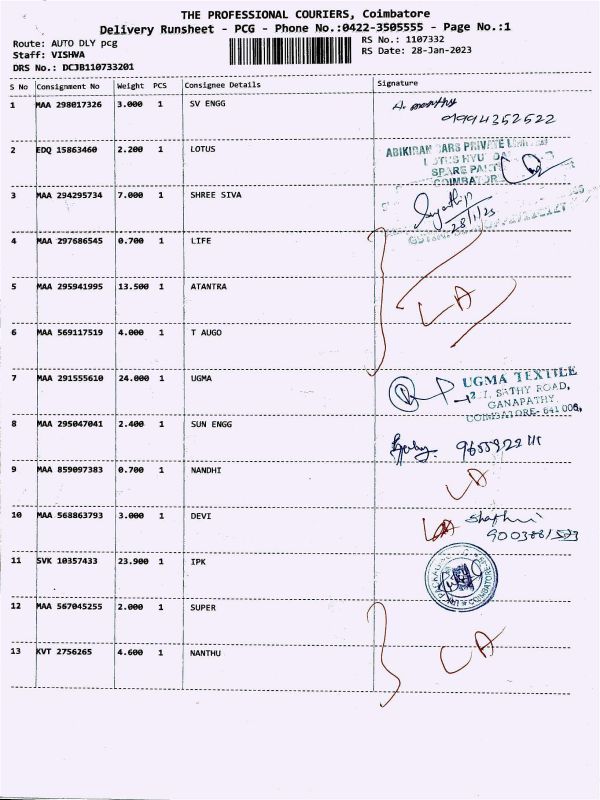 THE PROFESSIONAL COURIERS, Coimbatore
Delivery Runsheet - PCG - Phone No.:0422-3505555 - Page No.:1
Route: AUTO DLY pcg
RS No.: 1107332
Staff: VISHWA
RS Date: 28-Jan-2023
DRS No.: DCJB110733201
S No Consignment No Weight PCS Consignee Details Signature
1 MAA 298017326 3.000 1 SV ENGG
2 EDQ 15863460 2.200 1 LOTUS
ABIKIRAN CARS PRIVATE
SPARE PARTS
COIMBATOR
3 MAA 294295734 7.000 1 SHREE SIVA
28/1/23
4 MAA 297686545 0.700 1 LIFE
5 MAA 295941995 13.500 1 ATANTRA
LA
6 MAA 569117519 4.000 1 T AUGO
7 MAA 291555610 24.000 1 UGMA
UGMA TEXTILE
SATHY ROAD,
GANAPATHY,
COIMBATORE- 641 006,
8 MAA 295047041 2.400 1 SUN ENGG
9 MAA 859097383 0.700 1 NANDHI
LA
10 MAA 568863793 3.000 1 DEVI
LA
11 SVK 10357433 23.900 1 IPK
12 MAA 567045255 2.000 1 SUPER
13 KVT 2756265 4.600 1 NANTHU
LA